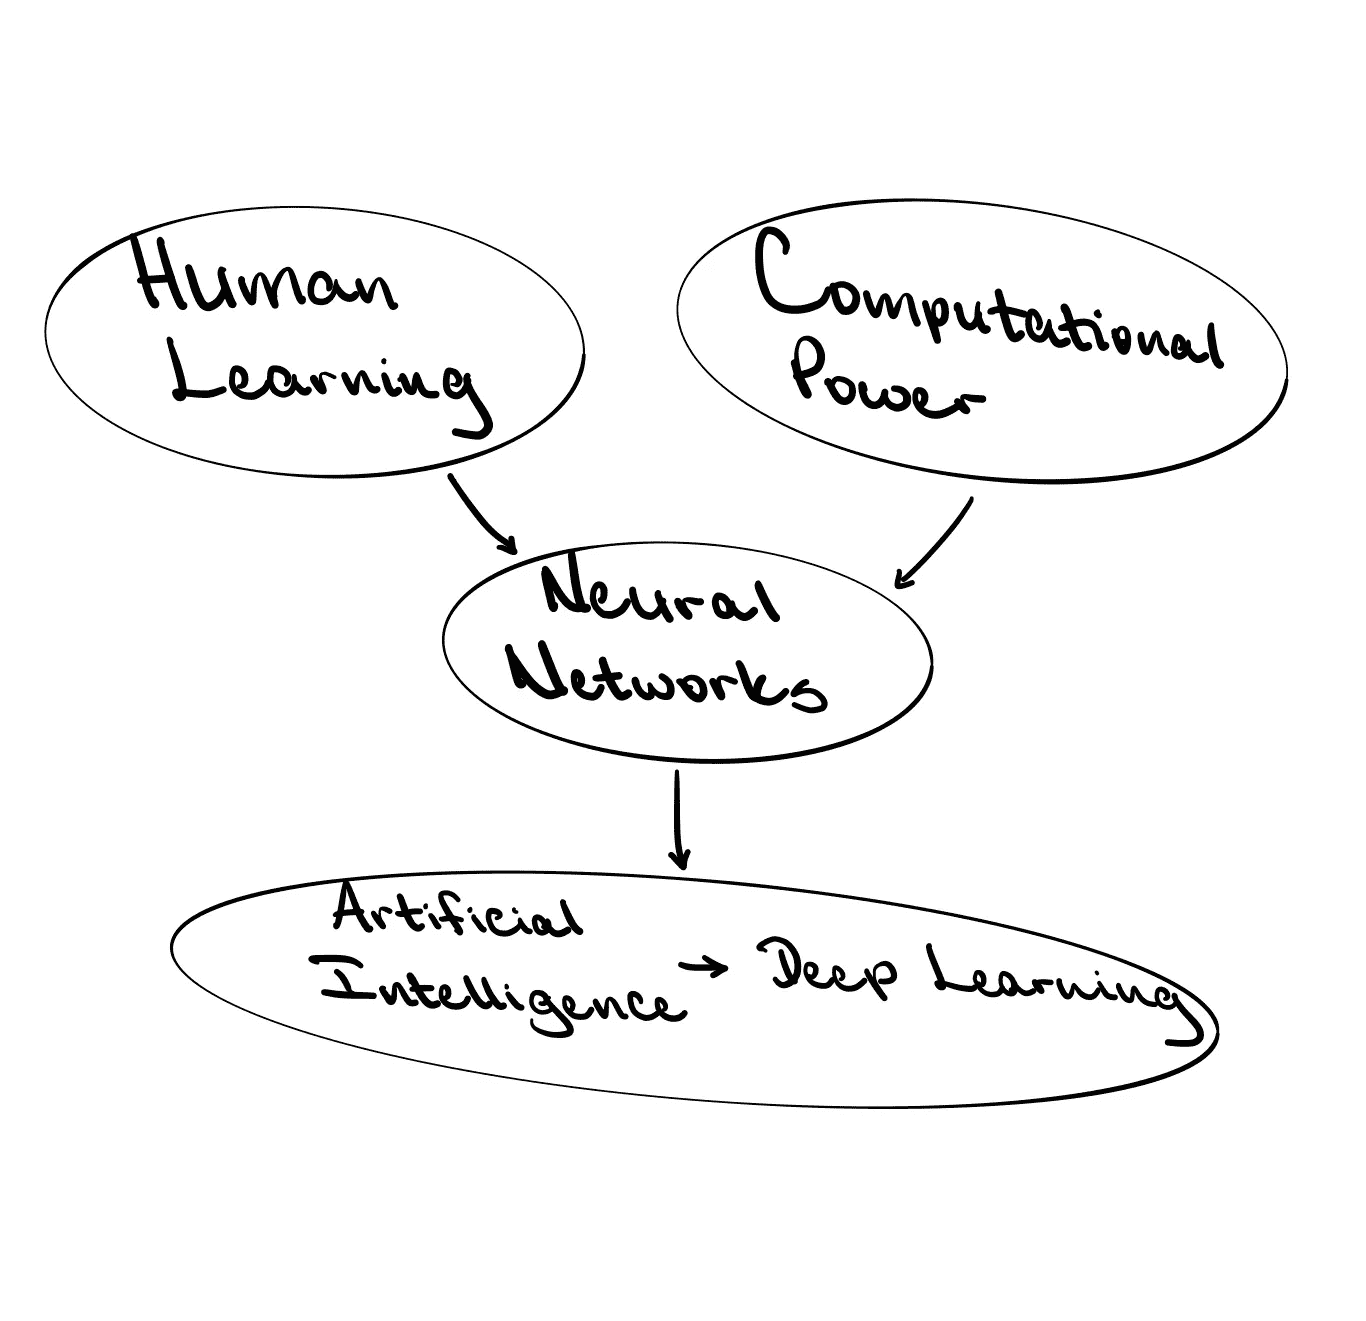 Human
Learning
Computational
Power
Neural
Networks
Artificial
Intelligence → Deep Learning